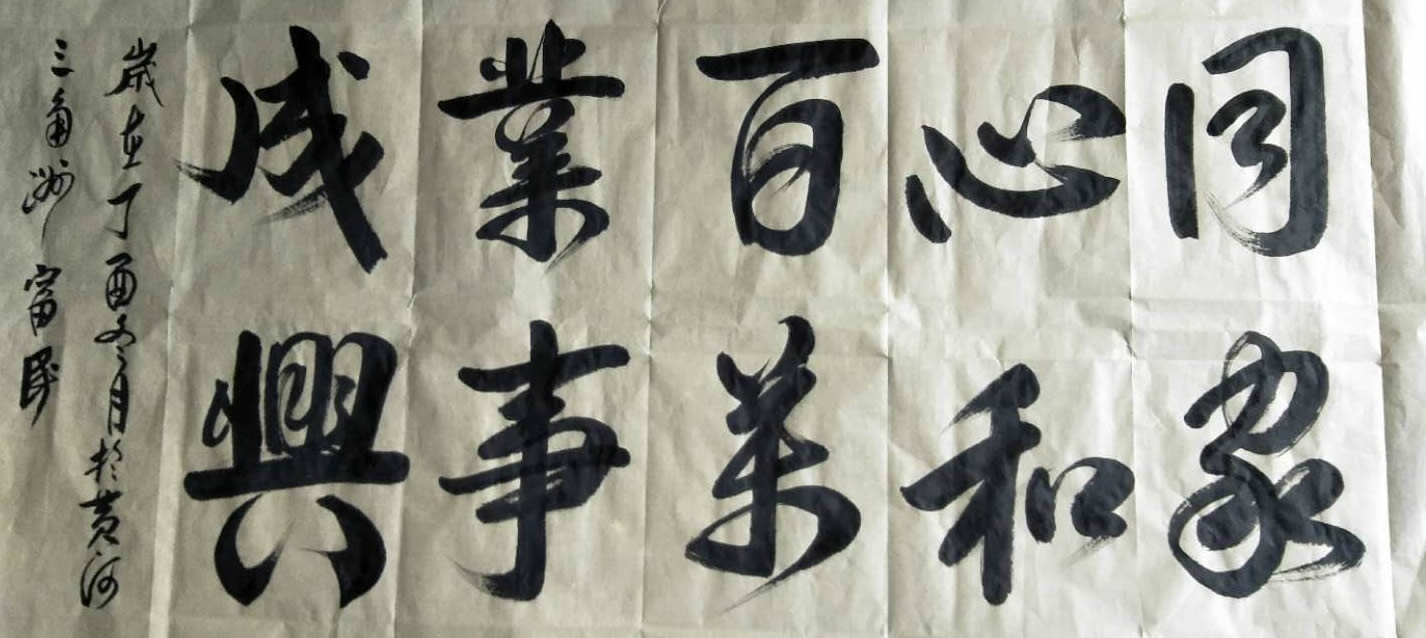 同心百業成
家和萬事興
歲在丁酉冬月於黃河
三角洲富民